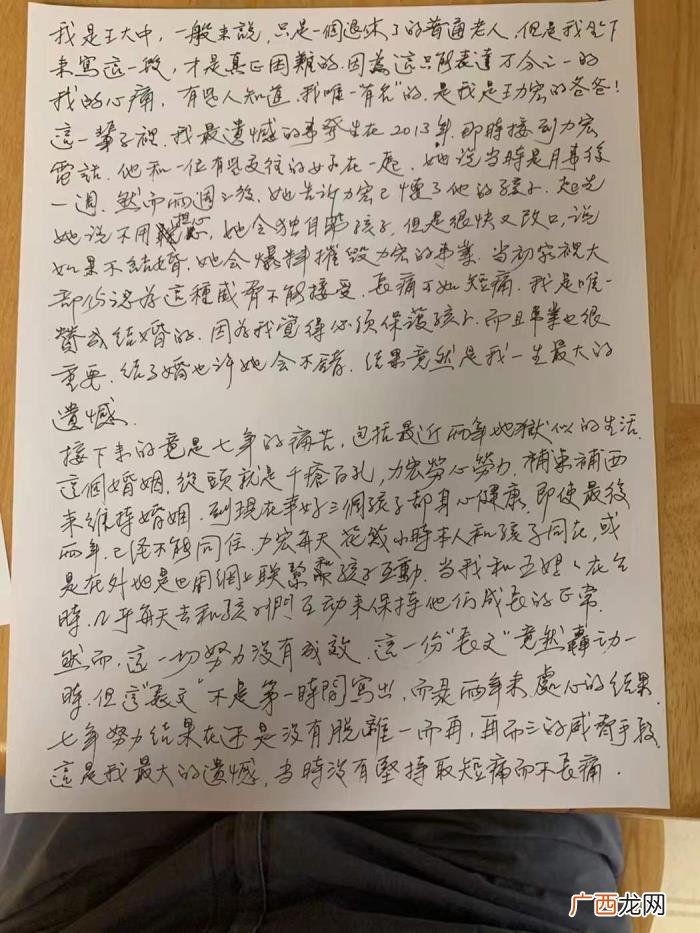 我是王大中，一般來說，只是一個退休了的普通老人，但是我坐下
來寫這一段，才是真正困難的。因為這只能表達万分之一的
我的心痛。有些人知道，我唯一"有名"的，是我是王力宏的爸爸！
這一輩子裡，我最遺憾的事發生在2013年，那時接到力宏
電話，他和一位有些交往的女子在一起，她說当時是月事後
一週，然而兩週之後，她告訴力宏已懷了他的孩子，起先
她說不用担心，她会独自帶孩子，但是很快又改口，說
如果不結婚，她会爆料摧毀力宏的事業。当初家裡大
部份認為這種威脅不能接受，長痛不如短痛，我是唯一
贊成結婚的，因為我覺得必須保護孩子，而且事業也很
重要，結了婚也許她会不錯，結果竟然是我一生最大的
遺憾。
接下來的竟是七年的痛苦，包括最近兩年地獄似的生活。
這個婚姻，從頭就是千瘡百孔，力宏勞心勞力，補東補西
來維持婚姻，到現在幸好三個孩子都身心健康，即使最後
兩年，已经不能同住，力宏每天花幾小時本人和孩子同在，或
是在外地是也用網上联繫和孩子互動。当我和王媽媽在台
時，几乎每天去和孩子們互动來保持他们成長的正常。
然而，這一切努力没有成效，這一份"長文"竟然轟动一
時，但這"長文"不是第一時間寫出，而是兩年來處心的結果。
七年努力結果在还是没有脫離一而再，再而三的威脅手段，
這是我最大的遺憾，当時没有堅持取短痛而不長痛．
广西龙网